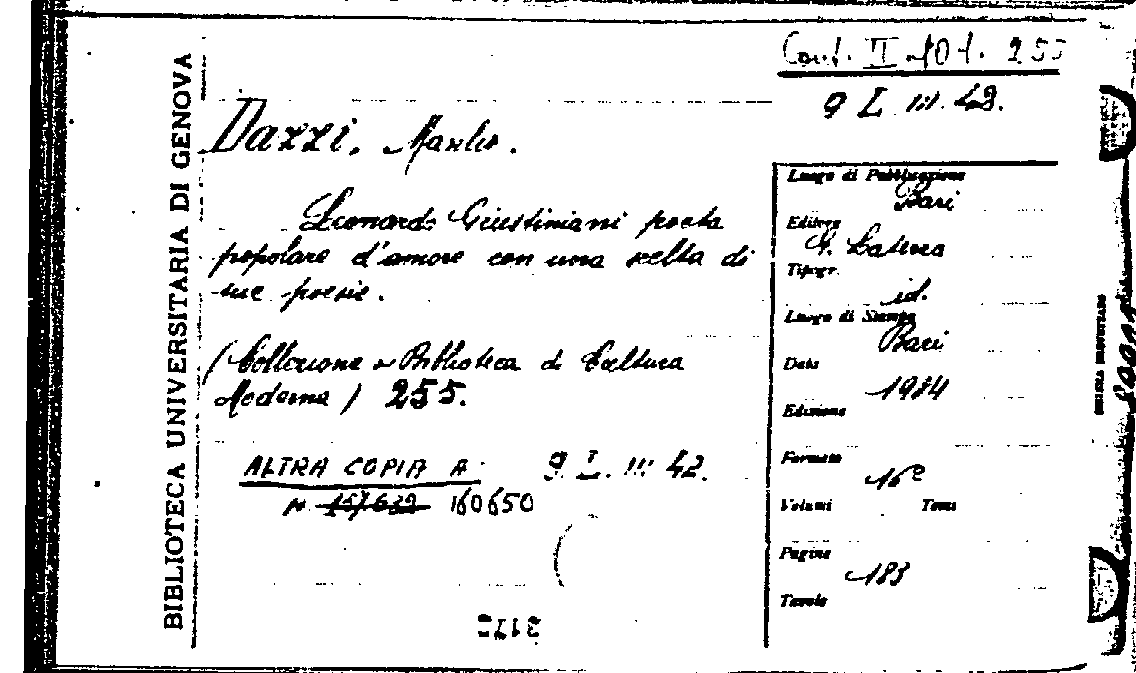 BIBLIOTECA UNIVERSITARIA DI GENOVA
Conf. II 101. 255
9 L III 42.
Dazzi, Manlio.
Leonardo Giustiniani poeta
popolare d'amore con una scelta di
sue poesie.
(Collezione Biblioteca di Cultura
Moderna) 255.
ALTRA COPIA A: 9. L. III 42.
N. 160650
Luogo di Pubblicazione
Bari
Editore
G. Laterza
Tipogr.
id.
Luogo di Stampa
Bari
Data
1934
Edizione
Formato
16º
Volumi Tomi
Pagine
183
Tavole